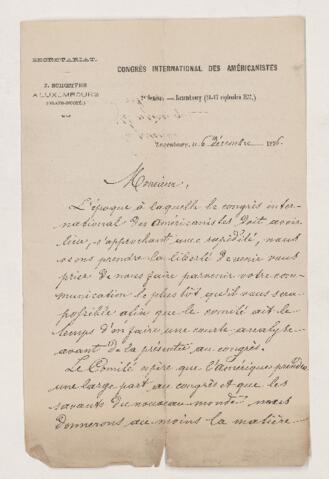 SECRÉTARIAT.
CONGRÈS INTERNATIONAL DES AMÉRICANISTES
J. SCHOETTER
A LUXEMBOURG
(GRAND-DUCHÉ.)
2e Session. — Luxembourg (10-13 septembre 1877.)
Luxembourg, le 6 décembre 1876.
Monsieur,
L'époque à laquelle le congrès inter-
national des américanistes doit avoir
lieu, s'approchant avec rapidité, nous
osons prendre la liberté de venir vous
prier de nous faire parvenir votre com-
munication le plus tôt qu'il vous sera
possible afin que le comité ait le
temps d'en faire une courte analyse
avant de la présenter au congrès.
Le Comité espère que l'Amérique prendra
une large part au congrès et que les
savants du nouveau monde nous
donnerons au moins la matière